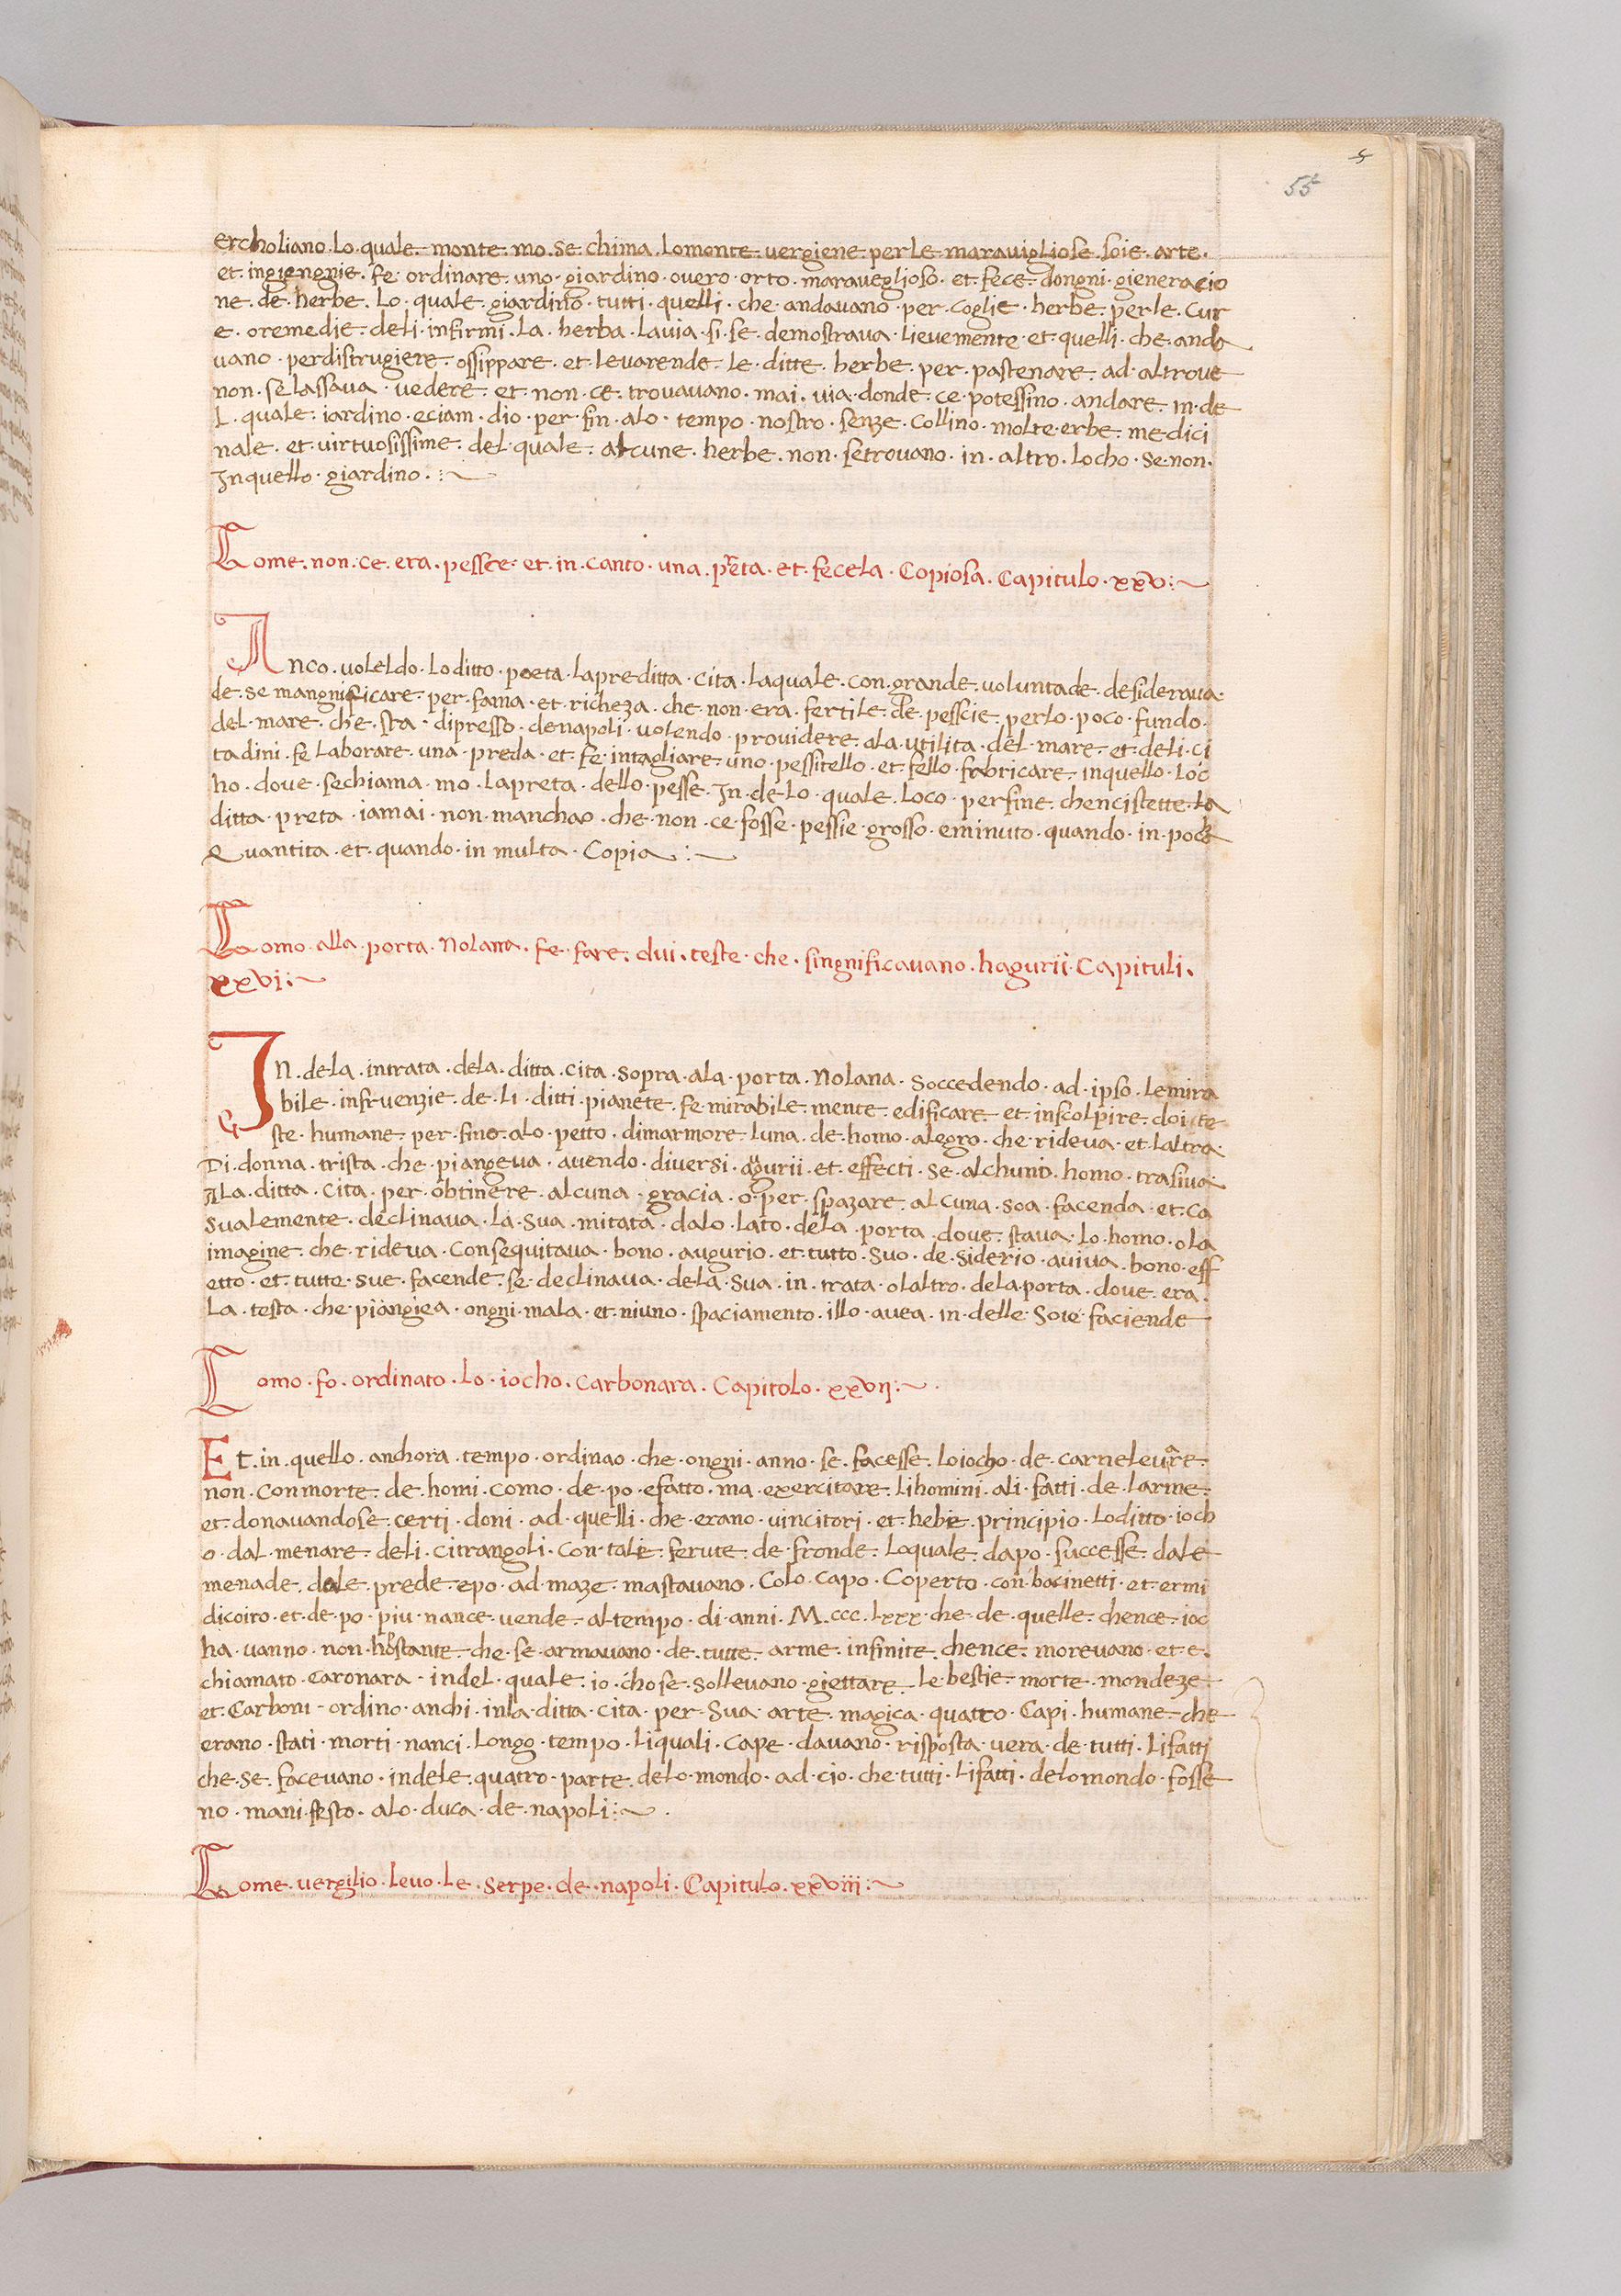 55
ercholiano · lo · quale · monte · mo · se chima · lomonte vergiene · perle · maravigliose · soie · arte ·
et · ingiengnie · fe · ordinare · uno · giardino · overo · orto · maraveglioso · et · fece · dongni · gieneracio
ne · de · herbe · lo · quale · giardino · tutti · quelli · che · andavano · per · coglie · herbe · perle · cur
e · oremedie · deli · infirmi · la · herba · lavia · si · se · demostrava · lievemente · et · quelli · che · anda
vano · perdistrugiere · ossippare · et · levarende · le · ditte · herbe · per · pastenare · ad · altrove
non · se lassava · vedere · et · non · ce · trovavano · mai · via · donde · ce · potessino · andare · in · de
l · quale · iardino · eciam · dio · per · fin · alo · tempo · nostro · senze · collino · molte · erbe · medici
nale · et · virtuosissime · del · quale · alcune · herbe · non · setrovano · in · altro · locho · se · non ·
Inquello · giardino · :~
Come · non · ce · era · pessce · et · in · canto · una · preta · et · fecela · Copiosa · Capitulo · xxv :~
Anco · voleldo · loditto · poeta · lapreditta · cita · laquale · con · grande · voluntade · desiderava ·
de · se mangnificare · per · fama · et · richeza · che · non · era · fertile · de · pesscie · perlo · poco · fundo ·
del · mare · che · sta · dipresso · denapoli · volendo · providere · ala · utilita · del · mare · et · deli · ci
tadini · fe laborare · una · preda · et · fe · intagliare · uno · pessitello · et · fello · fabricare · inquello · loc
ho · dove · sechiama · mo · lapreta · dello · pesse · In · de · lo · quale · loco · perfine · chencistette · la
ditta · preta · iamai · non · manchao · che · non · ce · fosse · pessie · grosso · eminuto · quando · in · poca
Quantita · et · quando · in multa · Copia · :~
Como · alla · porta · Nolana · fe · fare · dui · teste · che · singnificavano · hagurii · Capituli ·
xxvi :~
In · dela · intrata · dela · ditta · cita · sopra · ala · porta · Nolana · soccedendo · ad · ipso · lemira
bile · infruenzie · de · li · ditti · pianete · fe · mirabile · mente · edificare · et · inscolpire · doi · te
ste · humane · per · fine · alo · petto · dimarmore · luna · de · homo · alegro · che · rideva · et · laltra ·
Di · donna · trista · che · piangeva · avendo · diversi · agurii · et · effecti · se · alchuno · homo · trasiva
Ala · ditta · cita · per · obtinere · alcuna · gracia · o · per · spazare · alcuna · soa · facenda · et · ca
sualemente · declinava · la · sua · mitata · dalo · lato · dela · porta · dove · stava · lo · homo · o la
imagine · che · rideva · Consequitava · bono · augurio · et · tutto · suo · de · siderio · aviva · bono · eff
etto · et · tutte · sue · facende · se · declinava · dela · sua · in · trata · olaltro · dela porta · dove · era ·
la · testa · che · piangiea · ongni · mala · et · niuno · spaciamento · illo · avea · in · delle · soie · faciende
Como · fo · ordinato · lo · iocho · carbonara · Capitolo · xxvii :~ ·
Et · in · quello · anchora · tempo · ordinao · che · ongni · anno · se · facesse · loiocho · de · carnelevare ·
non · conmorte · de · homi · como · de · po · efatto · ma · exercitare · lihomini · ali · fatti · de · larme ·
et · donavandose · certi · doni · ad · quelli · che · erano · vincitori · et · hebie · principio · loditto · ioch
o · dal · menare · deli · citrangoli · con · talie · ferute · de · fronde · loquale · dapo · successe · dale
menade · dele · prede · epo · ad · maze · mastavano · Colo · capo · Coperto · con · bacinetti · et · ermi
dicoiro · et · de · po · piu · nance · vende · altempo · di · anni · M · ccc · lxxx · che · de · quelle · chence · ioc
ha · vanno · non · hobstante · che · se · armavano · de · tutte · arme · infinite · chence · morevano · et · e ·
chiamato · caronara · indel · quale · io · chose · sollevano · giettare · le · bestie · morte · mondeze ·
et · Carboni · ordino · anchi · inla · ditta · cita · per · sua · arte · magica · quattro · Capi · humane · che
erano · stati · morti · nanci · longo · tempo · liquali · cape · davano · risposta · vera · de · tutti · lifatti
che · se · facevano · indele · quatro · parte · delo · mondo · ad · cio · che · tutti · lifatti · delomondo · fosse
no · mani · festo · alo · duca · de · napoli :~ ·
Come · vergilio · levo · le · serpe · de · napoli · Capitulo · xxviii :~